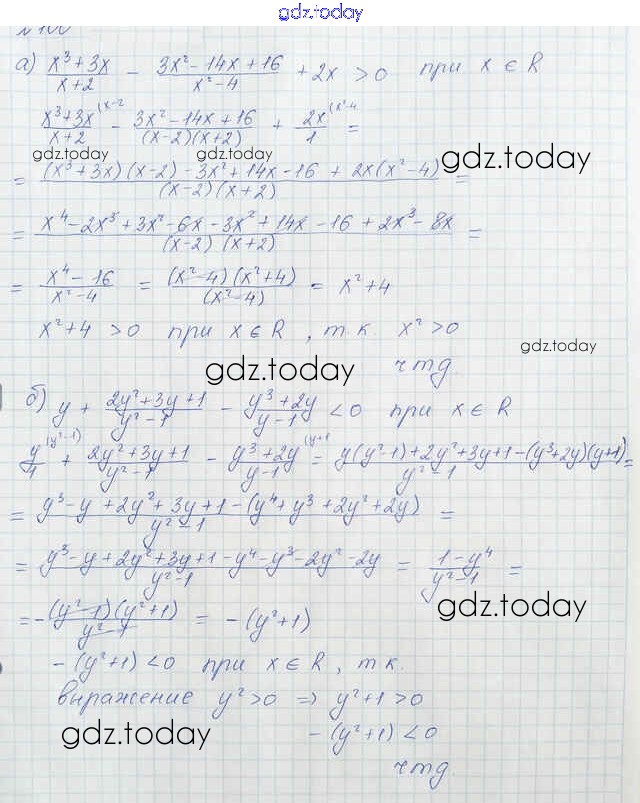 gdz.today
N 100
а) x³+3x/x+2 - 3x²-14x+16/x²-4 + 2x > 0 при x ∈ R
x³+3x/x+2 (x-2 - 3x²-14x+16/(x-2)(x+2) + 2x/1 (x²-4 =
gdz.today gdz.today gdz.today
= (x³+3x)(x-2)-3x²+14x-16+2x(x²-4)/(x-2)(x+2) =
= x⁴-2x³+3x²-6x-3x²+14x-16+2x³-8x/(x-2)(x+2) =
= x⁴-16/x²-4 = (x²-4)(x²+4)/(x²-4) = x²+4
x²+4 > 0 при x ∈ R, т.к. x²>0
gdz.today
gdz.today чтд.
б) y + 2y²+3y+1/y²-1 - y³+2y/y-1 < 0 при x ∈ R
y/1 (y²-1) + 2y²+3y+1/y²-1 - y³+2y/y-1 (y+1 = y(y²-1)+2y²+3y+1-(y³+2y)(y+1)/y²-1 =
= y³-y+2y²+3y+1-(y⁴+y³+2y²+2y)/y²-1 =
= y³-y+2y²+3y+1-y⁴-y³-2y²-2y/y²-1 = 1-y⁴/y²-1 =
gdz.today
= -(y²-1)(y²+1)/y²-1 = -(y²+1)
-(y²+1) < 0 при x ∈ R, т.к.
выражение y²>0 ⇒ y²+1>0
gdz.today
-(y²+1) < 0
чтд.